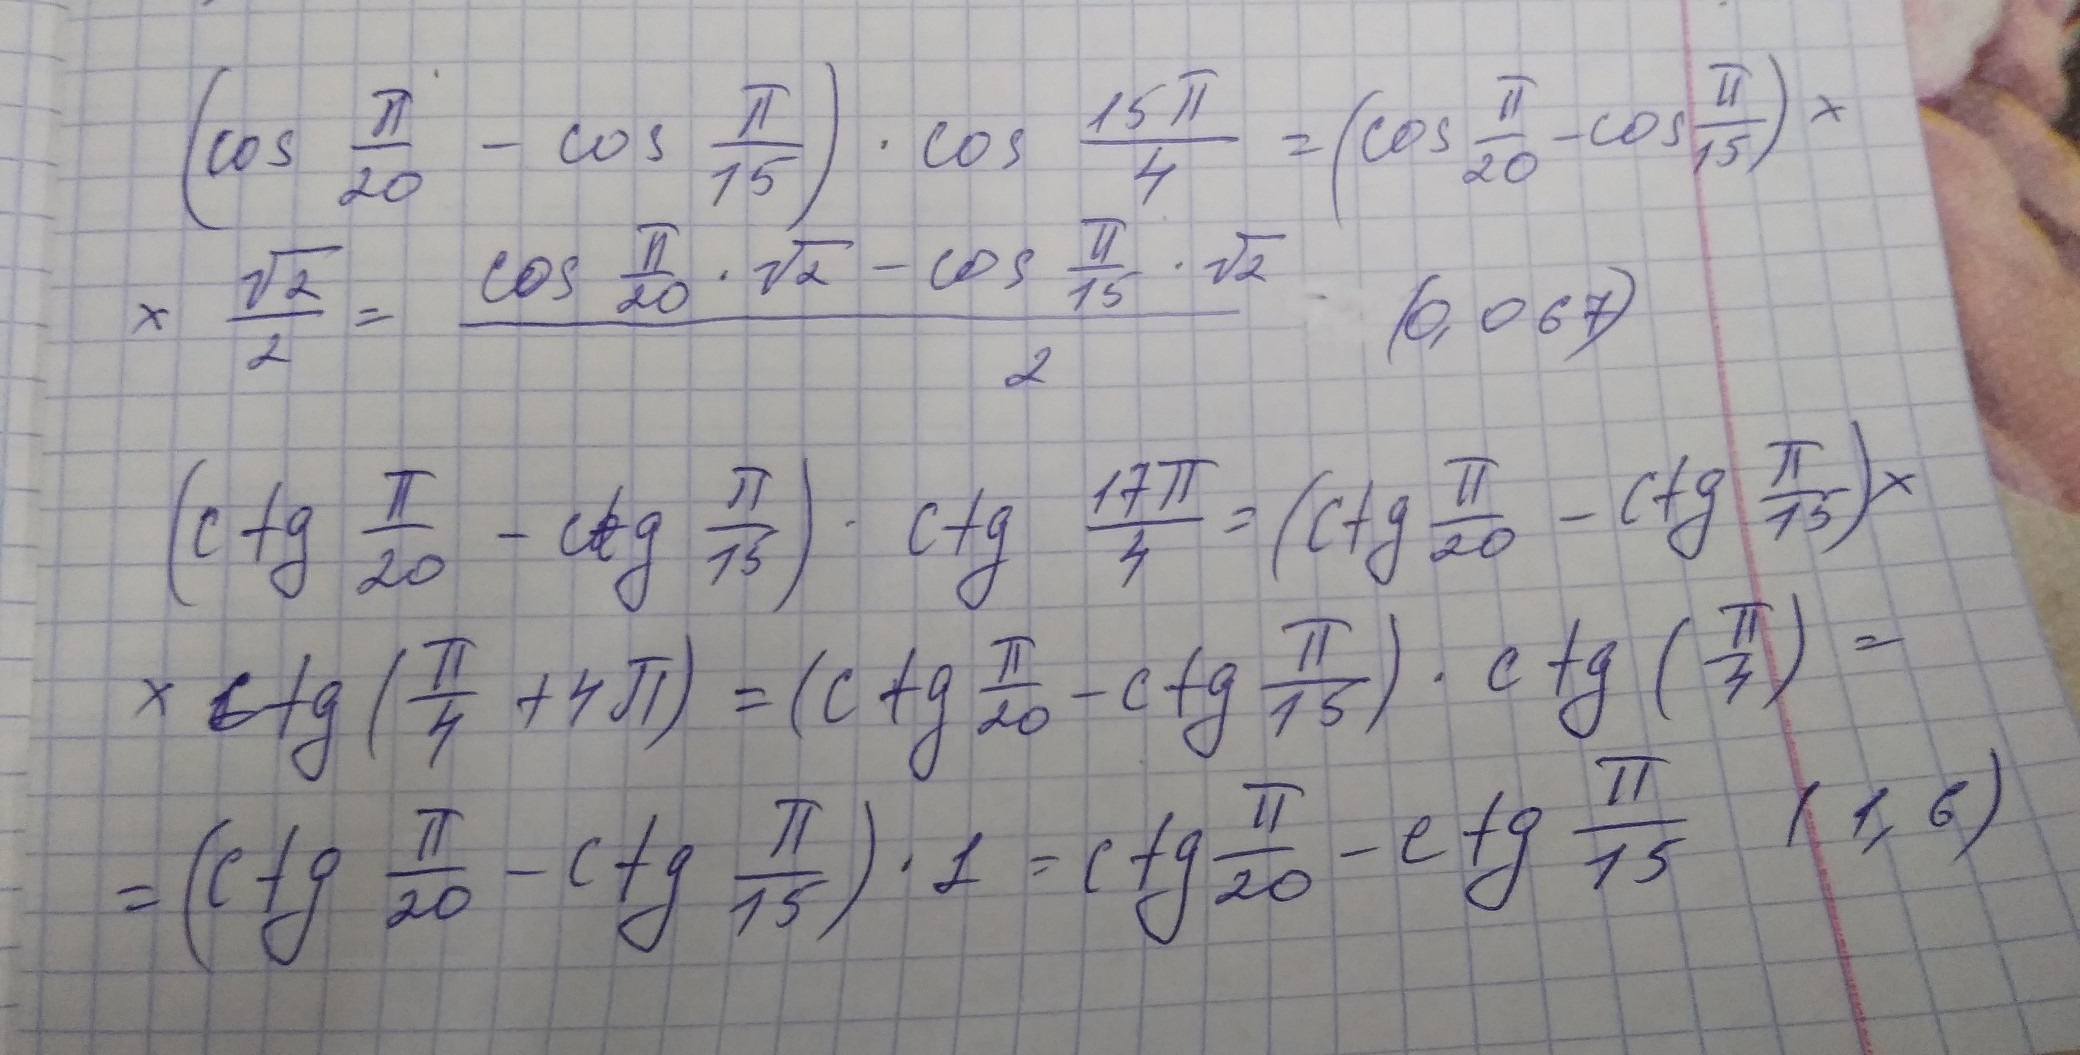 (cos π/20 - cos π/15) · cos 15π/4 = (cos π/20 - cos π/15) ×
× √2/2 = (cos π/20 · √2 - cos π/15 · √2)/2 (0,067)
(ctg π/20 - ctg π/15) · ctg 17π/4 = (ctg π/20 - ctg π/15) ×
× ctg (π/4 + 4π) = (ctg π/20 - ctg π/15) · ctg (π/4) =
= (ctg π/20 - ctg π/15) · 1 = ctg π/20 - ctg π/15 (1,6)